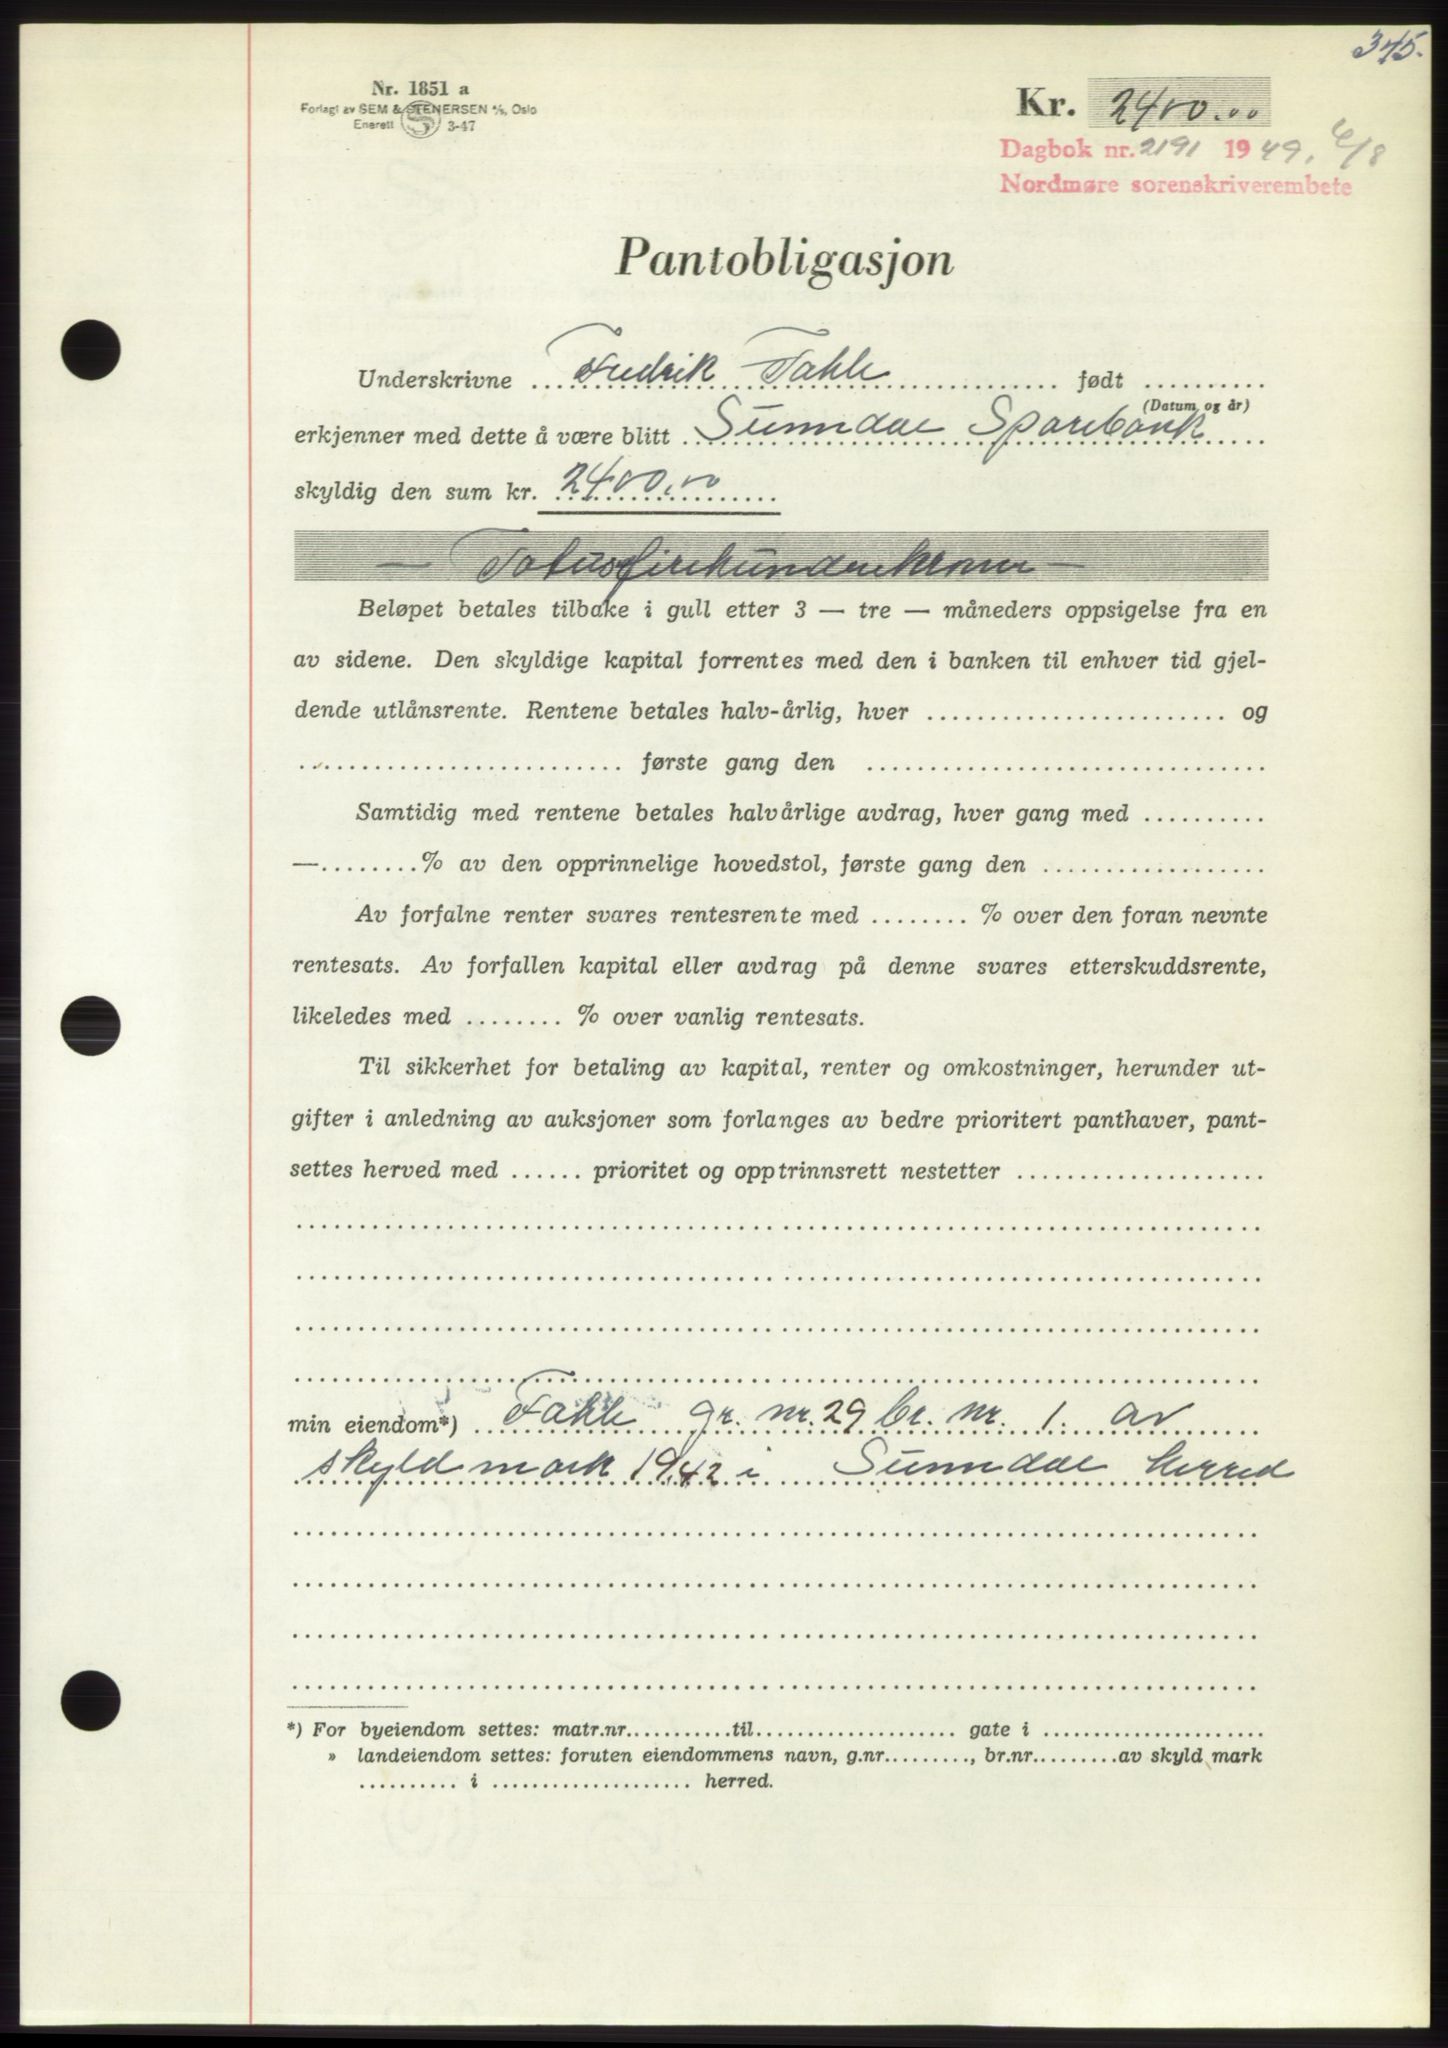 345.
Nr. 1851 a
Forlagt av SEM & STENERSEN A/S, Oslo
Enerett 3-47
Kr. 2400.00
Dagbok nr. 2191 1949, 6/8
Nordmøre sorenskriverembete
Pantobligasjon
Underskrivne Fredrik Fahle født ..........
(Datum og år)
erkjenner med dette å være blitt Sunndal Sparebank
skyldig den sum kr. 2400.00
— Totusfirehundrekroner —
Beløpet betales tilbake i gull etter 3 — tre — måneders oppsigelse fra en
av sidene. Den skyldige kapital forrentes med den i banken til enhver tid gjel-
dende utlånsrente. Rentene betales halv-årlig, hver ........................ og
.......................... første gang den ................................
Samtidig med rentene betales halvårlige avdrag, hver gang med ..........
—........% av den opprinnelige hovedstol, første gang den ..................
Av forfalne renter svares rentesrente med ........ % over den foran nevnte
rentesats. Av forfallen kapital eller avdrag på denne svares etterskuddsrente,
likeledes med ........ % over vanlig rentesats.
Til sikkerhet for betaling av kapital, renter og omkostninger, herunder ut-
gifter i anledning av auksjoner som forlanges av bedre prioritert panthaver, pant-
settes herved med ...... prioritet og opptrinnsrett nestetter ....................
min eiendom*) Fahle gr. nr. 29 br. nr. 1. av
skyld mark 19,42 i Sunndal herred
*) For byeiendom settes: matr.nr...........til.................... gate i ......................
» landeiendom settes: foruten eiendommens navn, g.nr........., br.nr.........av skyld mark
.......... i .................... herred.